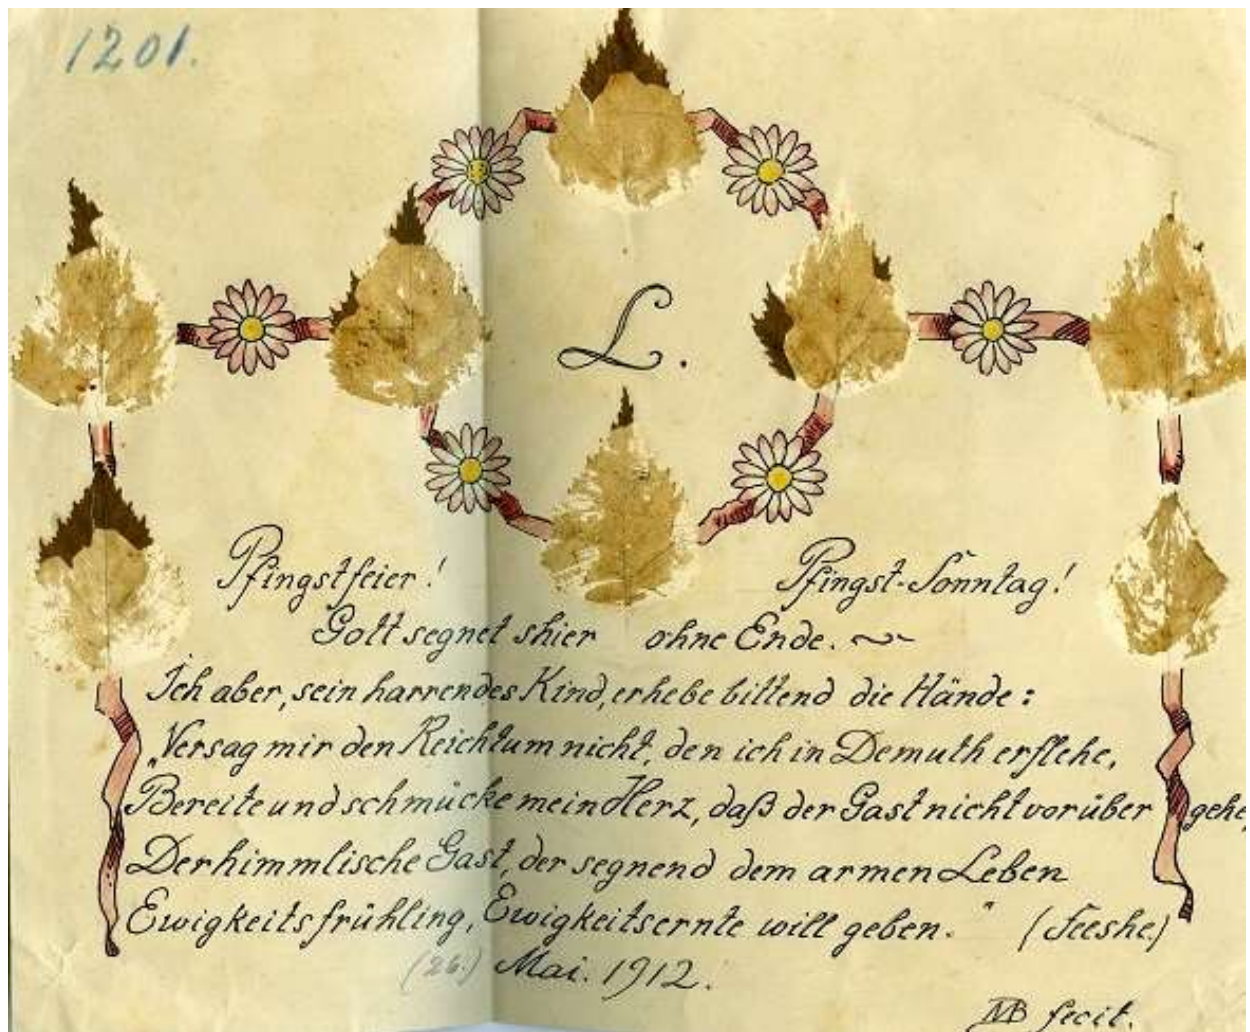 1201.
L.
Pfingstfeier! Pfingst-Sonntag!
Gott segnet shier ohne Ende. ~
Ich aber, sein harrendes Kind, erhebe bittend die Hände:
"Versag mir den Reichtum nicht, den ich in Demuth erflehe,
Bereite und schmücke mein Herz, daß der Gast nicht vorüber gehe,
Der himmlische Gast, der segnend dem armen Leben
Ewigkeitsfrühling, Ewigkeitsernte will geben." (Feeshe.)
(26.) Mai. 1912.
MB fecit.